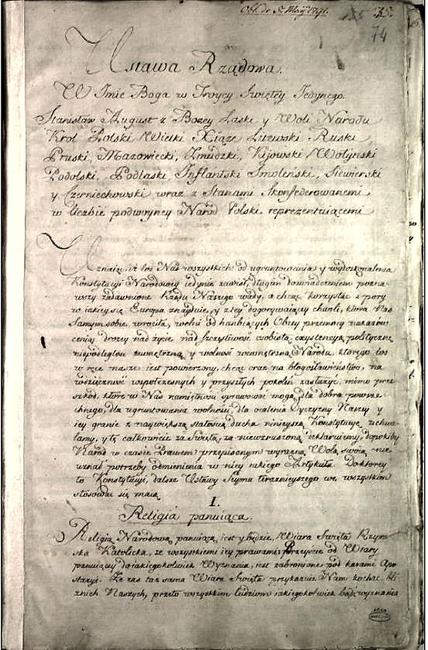 Ustawa Rządowa.
W Imie Boga w Troycy Swiętey Jedynego.
Stanisław August z Bozey Łaski y Woli Narodu
Krol Polski Wielki Xiąze Litewski Ruski
Pruski, Mazowiecki, Zmudzki, Kijowski Wołynski
Podolski, Podlaski Inflantski Smoleński, Siewierski
y Czerniechowski wraz z Stanami Skonfederowanemi
w liczbie podwoyney Naród Polski reprezentuiącemi
Uznaiąc, iż los Nas wszystkich od ugruntowania y wydoskonalenia
Konstytucyi Narodowey iedynie zawisł, długim doswiadczeniem pozna-
wszy zadawnione Rządu Naszego wady, a chcąc korzystać z pory
w iakiey się Europa znayduie, y z tey dogorywaiącey chwili, która Nas
Samym sobie wrociła, wolni od hanbiących Obcey przemocy nakazów
ceniąc drożey nad życie, nad szczęśliwość osobistą, exystencyą polityczną
niepodległość zewnętrzną, y wolność wewnętrzną Narodu, którego los
w ręce nasze iest powierzony, chcąc oraz na błogosławieństwo, na
wdzięczność współczesnych y przyszłych pokoleń zasłużyć, mimo prze-
szkód, które w Nas namiętności sprawować mogą, dla dobra powsze-
chnego, dla ugruntowania wolności, dla ocalenia Oyczyzny Naszey y
iey granic z naywiększą stałością ducha ninieyszą Konstytucyę uchwa-
lamy, y tę całkowicie za świętą, za niewzruszoną deklaruiemy, dopokiby
Naród w czasie prawem przepisanym wyrazną Wolą swoią nie-
uznał potrzeby odmienienia w niey iakiego Artykułu. Do którey
to Konstytucyi, dalsze Ustawy Seymu teraznieyszego we wszystkim
stosować się maią.
I.
Religia panuiąca.
Religią Narodową panuiącą iest y będzie Wiara Swięta Rzym-
ska Katolicka, ze wszystkiemi iey prawami. Przeyście od Wiary
panuiącey do iakiegokolwiek Wyznania, iest zabronione pod karami Apo-
stazyi. Że zaś taż sama Wiara Swięta przykazuie Nam kochać bli-
znich Naszych, przeto wszystkim ludziom iakiegokolwiek bądź wyznania